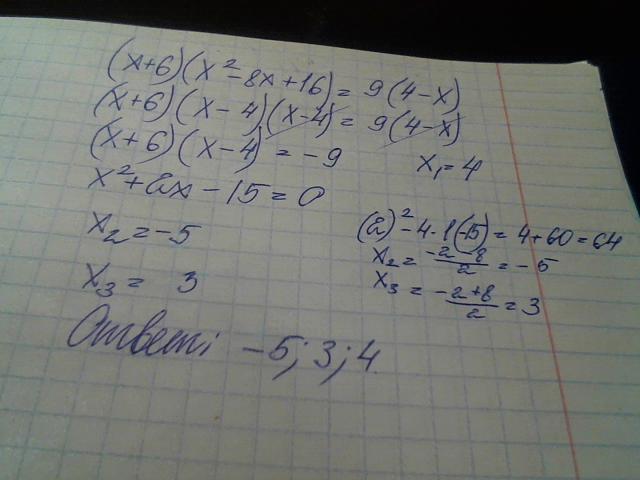 (x+6)(x²-8x+16)= 9(4-x)
(x+6)(x-4)(x-4)= 9(4-x)
(x+6)(x-4) = -9
x₁=4
x²+2x-15=0
x₂=-5
x₃= 3
(2)²-4·1(-15)=4+60=64
x₂= -2-8/2 = -5
x₃= -2+8/2 = 3
Ответ: -5; 3; 4